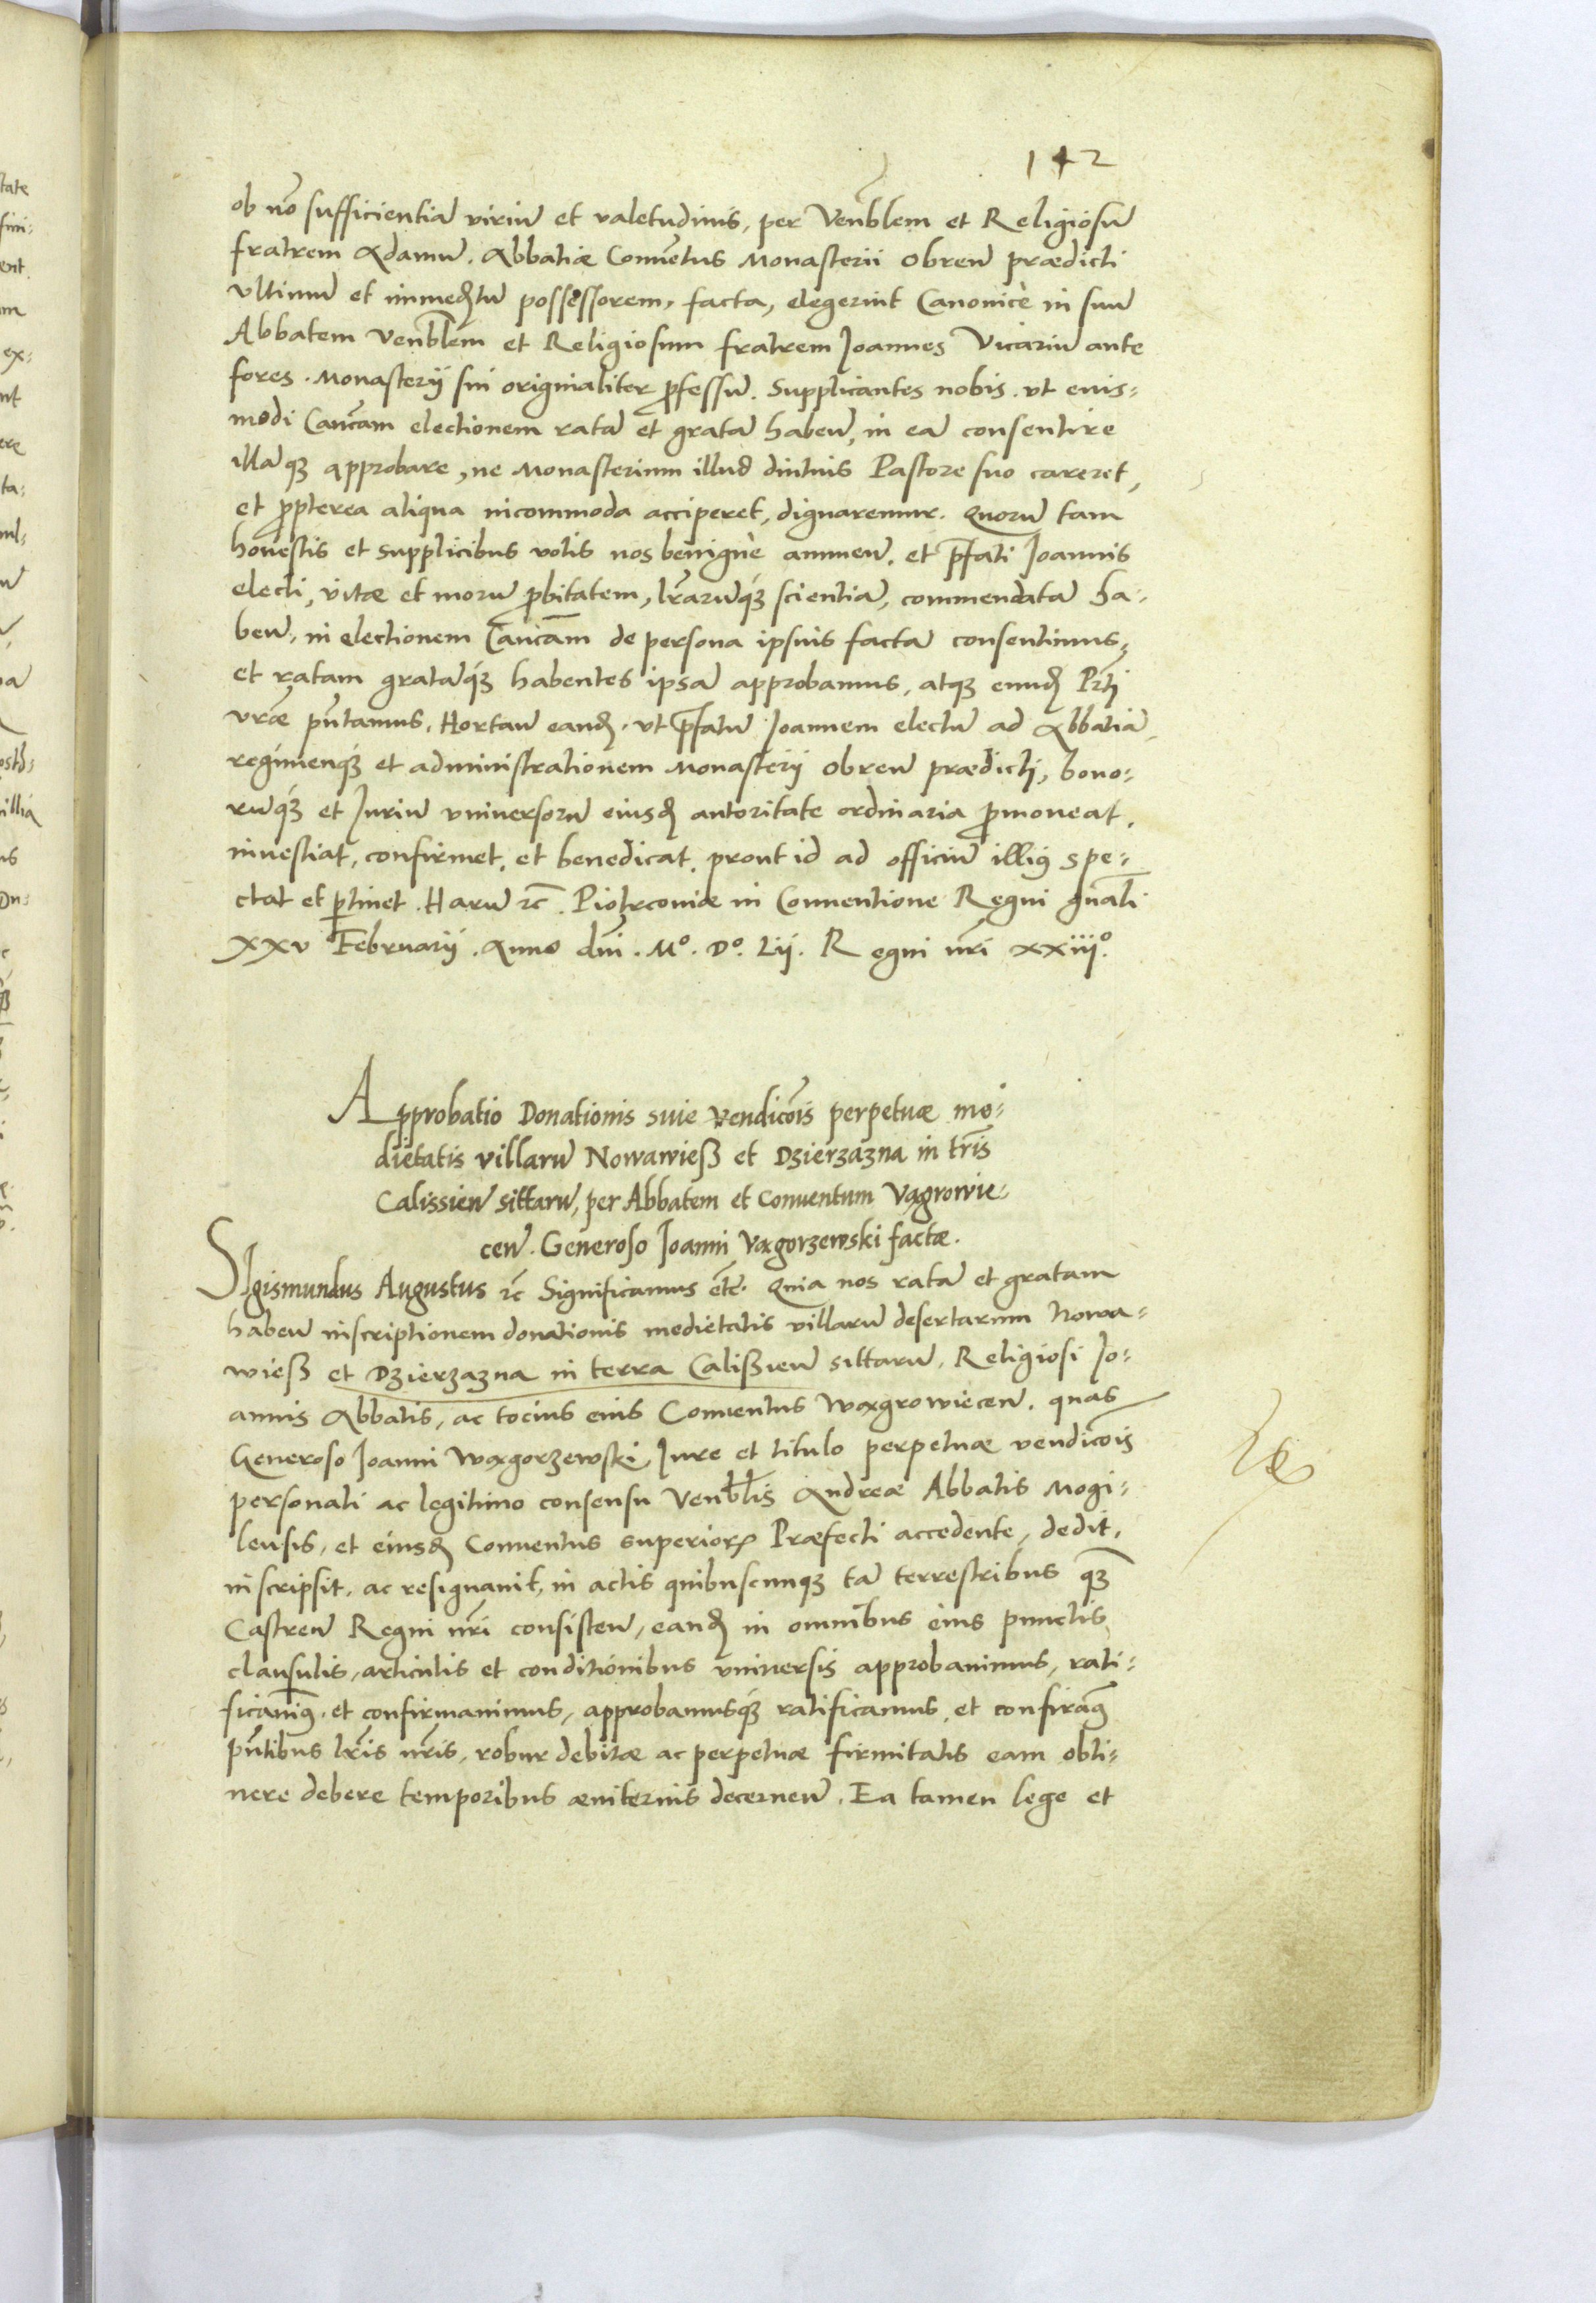 142
ob nō sufficientiā viriū et valetudinis, per Venˡblem et Religiosū
fratrem Adamū. Abbatiæ Conuētus Monasterii Obreñ prædicti
vltimū et immedtū possessorem, facta, elegerint Canonicè in suū
Abbatem Venˡblem et Religiosum fratrem Joannes Vicariū ante
fores. Monasterij sui originaliter pfessū. Supplicantes nobis. vt euis=
modi Canˡcam electionem ratā et gratā habeñ, in eā consentire
illāqꝫ approbare, ne Monasterium illud diutius Pastore suo careret,
et ppterea aliqua incommoda acciperet, dignaremur. Quorū tam
honestis et supplicibus votis nos benignè annueñ. et pfati Joannis
electi, vitæ et morū pbitatem, lrārūqꝫ scientiā, commendatā ha=
beñ, in electionem Canˡcam de persona ipsius factā consentimus,
et ratam gratāqꝫ habentes ipsā approbamus, atqꝫ eund Ptī
vrāe pñtamus, Hortañ eand. vt pfatū Joannem electū ad Abbatiā,
regimenqꝫ et administrationem Monasterij Obreñ prædicti, bono=
rūqꝫ et Juriū vniuersorū eiusd autoritate ordinaria pmoueat,
inuestiat, confirmet, et benedicat. prout id ad officiū illiꝰ spe=
ctat et ptinet. Harū ꝛc. Piotrcouiæ in Conuentione Regni gnāli
XXV Februarij. Anno dnī. Mº. Dº. Lij. Regni nrī xxiijº.
Approbatio Donationis siue Vendicōis perpetuæ me=
dietatis villarū Nowawieß et Dzierzazna in trīs
Calissieñ sittarū, per Abbatem et Conuentum Vagrowie=
ceñ. Generoso Joanni Vagorzewski factæ.
Sigismundus Augustus ꝛc Significamus etc. Quia nos ratā et gratam
habeñ inscriptionem donationis medietatis villarū desertarum Nowa=
wieß et Dzierzazna in terra Calißieñ sittarū, Religiosi Jo=
annis Abbatis, ac tocius eius Conuentus Wagrowieceñ. quas
Generoso Joanni Wagorzewski Jure et titulo perpetuæ vendicōis
personali ac legitimo consensu Venˡblis Andreæ Abbatis Mogi=
lensis, et eiusd Conuentus superiorꝭ Præfecti accedente, dedit,
inscripsit, ac resignauit, in actis quibuscunqꝫ tā terrestribus qꝫ
Castreñ Regni nrī consisteñ, eand in omnibus eius punctis
clausulis, articulis et conditionibus vniuersis approbauimus, rati=
ficauimꝰ. et confirmauimus, approbamusqꝫ ratificamus, et confirmaꝰ
pñtibus lrīs nrīs, robur debitæ ac perpetuæ firmitatis eam obti=
nere debere temporibus æuiternis decerneñ. Ea tamen lege et